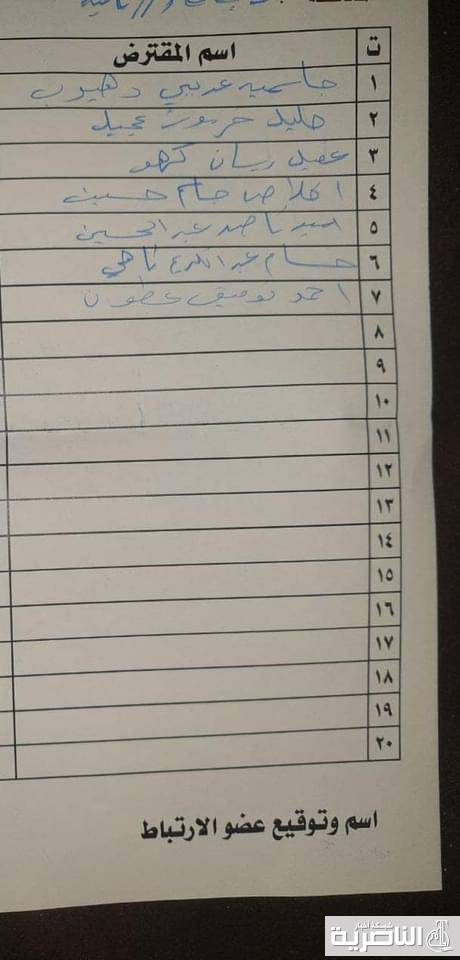 ت اسم المقترض
١ جاسميه عريبي دهيوب
٢ جليل حربوت عجيل
٣ عقيل ريسان گهو
٤ اخلاص جاسم حسين
٥ اسيد ناصر عبد الحسين
٦ حسام عبد الكريم ناهي
٧ احمد توفيق عطوان
٨
٩
١٠
١١
١٢
١٣
١٤
١٥
١٦
١٧
١٨
١٩
٢٠
اسم وتوقيع عضو الارتباط
شبكة أخبار
الناصرية